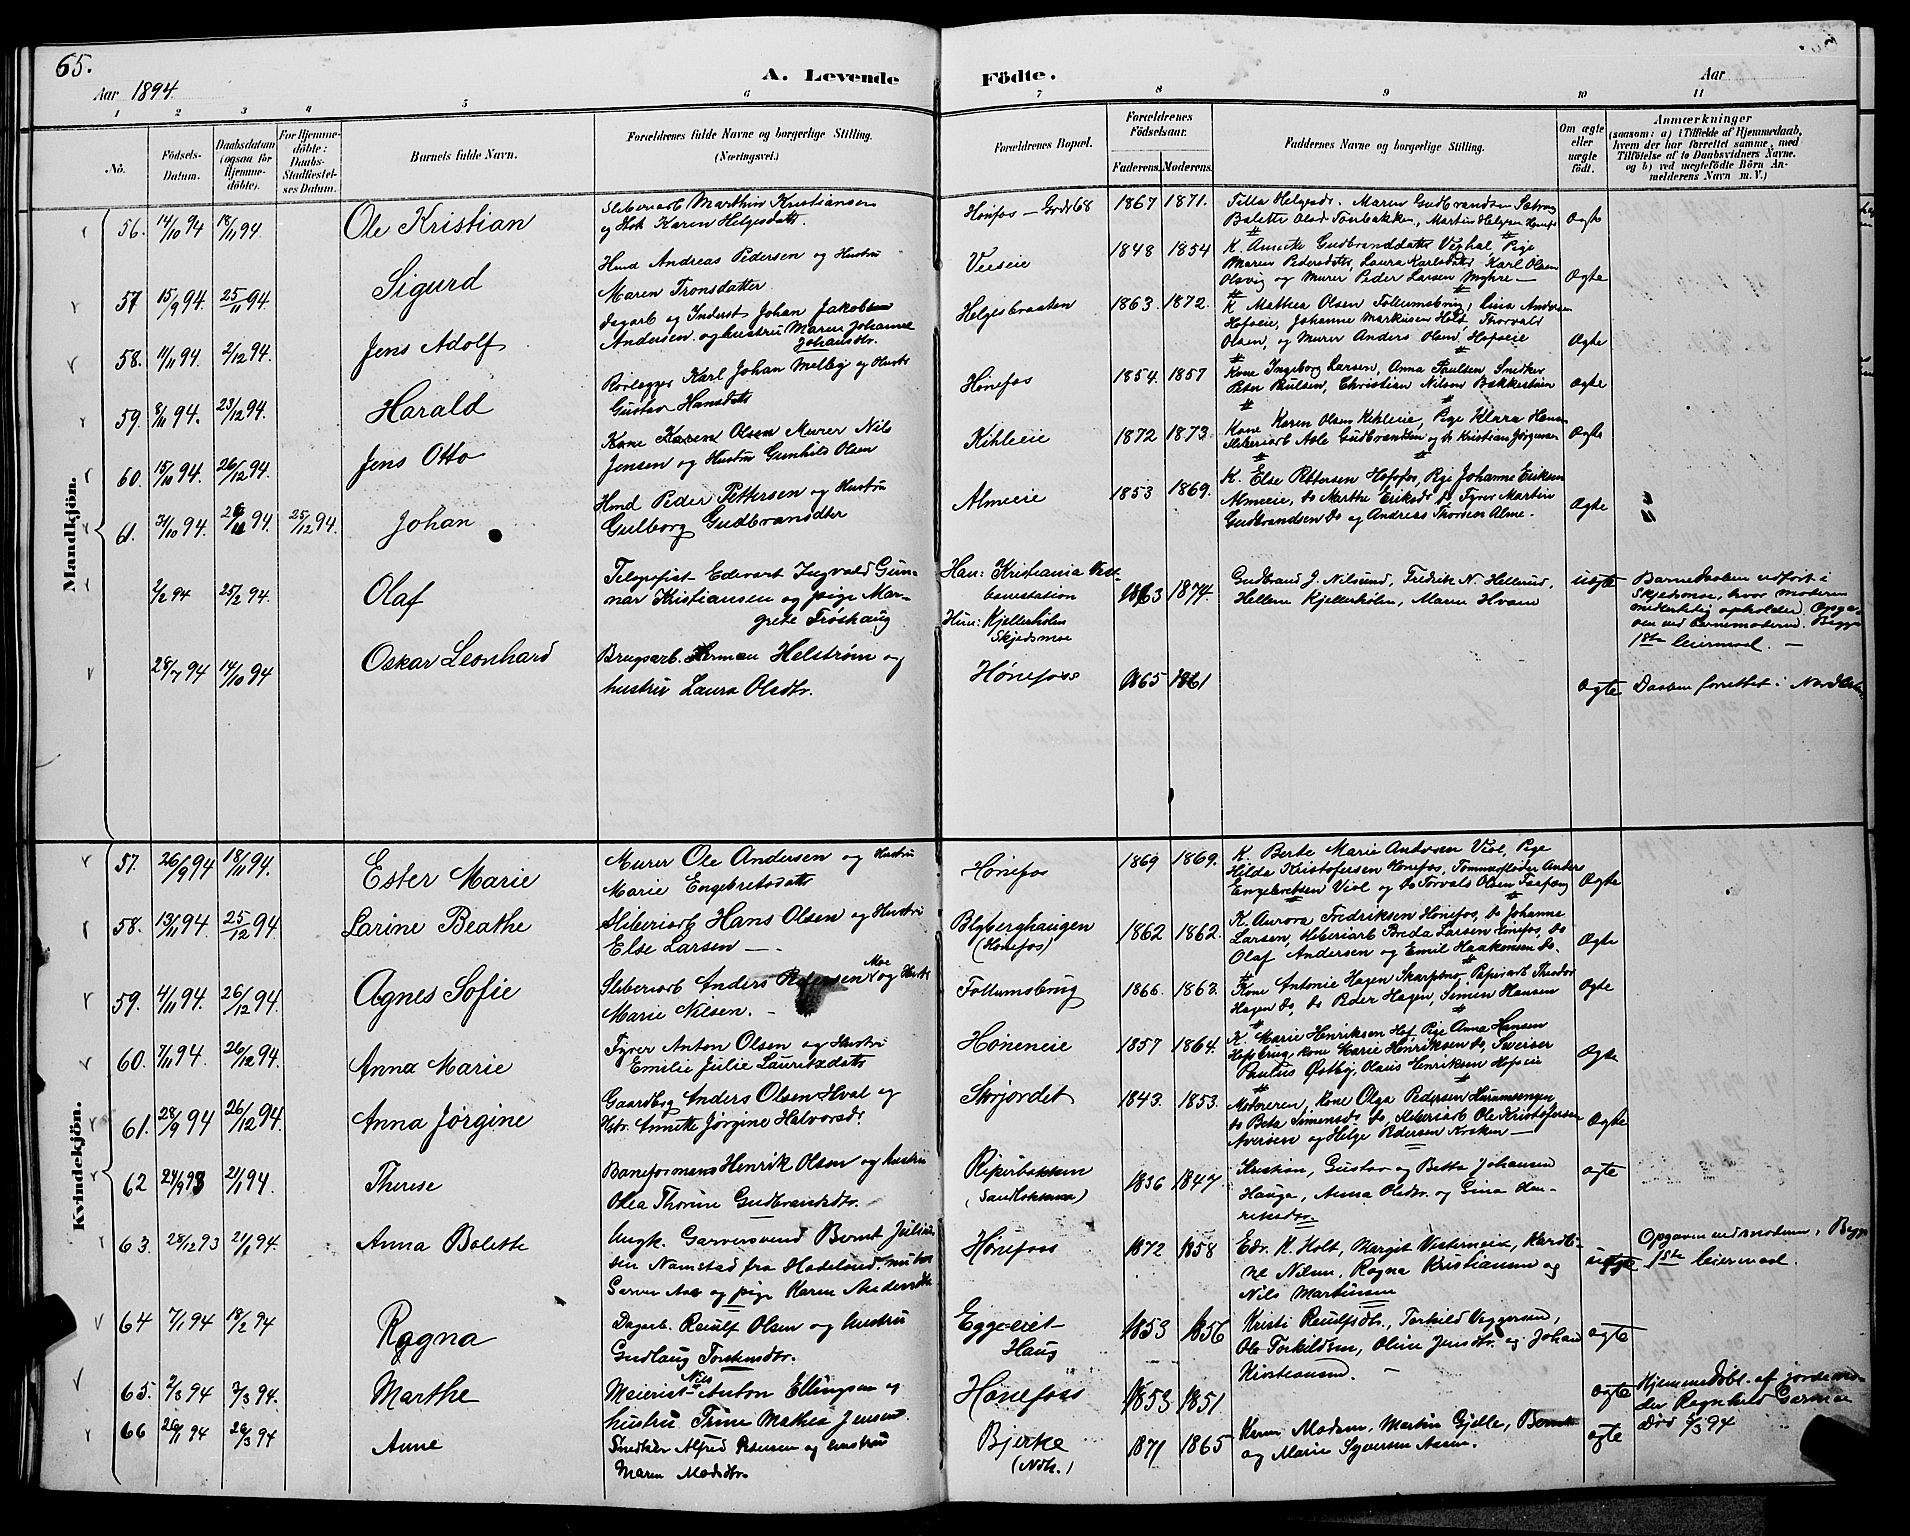 65.
A. Levende Födte.
Aar 1894
Aar
1 2 3 4 5 6 7 8 9 10 11
No.
Födsels-Datum.
Daabsdatum (ogsaa for Hjemme-döbte).
For Hjemme-döbte: Daabs-Stadfæstel-ses Datum.
Barnets fulde Navn.
Forældrenes fulde Navne og borgerlige Stilling. (Næringsvei.)
Forældrenes Bopæl.
Forældrenes Födselsaar.
Faderens. Moderens.
Faddernes Navne og borgerlige Stilling.
Om ægte eller uægte födt.
Anmærkninger
(saasom: a) i Tilfælde af Hjemmedaab, hvem der har forrettet samme, med Tilföielse af to Daabsvidners Navne. og b) ved uægtefödte Börn An-melderens Navn m. V.)
Mandkjön.
56. 14/10 94 18/11 94 Ole Kristian
Sliberiarb Marthin Kristiansen
og Karen Helgesdatt.
Hönfos 1867 1871. Ægte
57 15/9 94. 25/11 94. Sigurd
Hmd Andreas Pedersen og Hustru
Maren Tronsdatter
Veiseie 1848 1854
K. Annette Gudbranddatt Veghal Pige
Maren Pedersdatt, Laura Karlsdatt Karl Olsen
og Murer Peder Larsen Myhre — Ægte
58. 11/11 94. 2/12 94. Jens Adolf
Dagarb og Inderst Johan Jakob
Andersen og hustru Maren Johanne
Johansdtr.
Helgesbraaten 1863. 1872.
K Mathea Olsen Follumsbrug, Andersen
Hofseie, Johanne Markusen Hold, Thorvald
Olsen, og Murer Anders Olsen Hofseie Ægte
59. 8/11 94. 23/12 94. Harald
Rörlægger Karl Johan Melby og Hustr
Gustava Hansdatt
Hönefos 1854. 1857
Kone Ingeborg Larsen, Anna Paulsen Snedker
Peter Paulsen, Christian Nilsen Bakkestuen Ægte
60. 15/10 94. 26/12 94. Jens Otto
Kone Karen Olsen Murer Nils
Jensen og Hustru Gunhild Olsen
Kihleie 1872 1873.
Kone Karen Olsen Kihleie, Pige Klara Hansen
Sliberiarb Asle Gudbrandsen og do Kristian Jörgensen Ægte
61. 31/10 94. 94. 25/12 94. Johan
Hmd Peder Pettersen og Hustru
Gulborg Gudbransdter
Almeie 1853 1869.
K. Else Pettersen Hofsfos, Pige Johanne Eriksen
Almeie, do Marthe Eriksd do Fyrer Martin
Gudbrandsen do og Andreas Thorsen Alme. Ægte
2/2 94 25/2 94. Olaf
Telegrafist Edevart Ingvald Gun-
nar Kristiansen og pige Mar-
grete Fröshaug
Han: Kristiania Vest-
banestation
Hun: Kjellerholen
Skjedsmoe
1863 1874.
Gudbrand J. Nilsund, Fredrik N. Hellerud,
Hellene Kjellerholen, Maren Hvam
uægte
Barnedaaben udfört i
Skjedsmoe, hvor moderen
midlertidig opholder. Opga-
ven ved Barnemoderen. Begges
1ste leiermaal. —
28/7 94 14/10 94 Oskar Leonhard
Brugsarb. Herman Helström og
hustru Laura Olsdtr.
Hönefoss 1865 1861
Ægte Daaben forrettet i Norderhov
Kvindekjön.
57. 26/9 94 18/11 94. Ester Marie
Murer Ole Andersen og Hustru
Marie Engebretsdatt
Hönefos 1869 1869.
K. Berte Marie Andersen Viul, Pige
Hilda Kristofersen Hönefos, Tömmerfløder Anders
Engebretsen Viul og do Torvald Olsen Ægte
58. 13/11 94. 25/12 94. Larine Beathe
Sliberiarb Hans Olsen og Hustru
Else Larsen —
Blyberghaugen
(Hönefos) 1862 1862.
K. Aurora Fredriksen Hönefos, do Johanne
Larsen, Sliberiarb Breda Larsen Hönefos, do
Olaf Andersen og Emil Haakonsen do. Ægte
59. 4/11 94. 26/12 94. Agnes Sofie
Sliberiarb Anders Pedersen Moe og Hustr
Marie Nilsen. —
Follumsbrug 1866. 1863.
Kone Antonie Hagen Skarpsno, Papirarb Theodor
Hagen do, do Peder Hagen, Simen Hansen Ægte
60. 7/11 94. 26/12 94. Anna Marie
Fyrer Anton Olsen og Hustru
Emilie Julie Lauritzdatt
Höneneie 1857 1864.
K. Marie Henriksen Hof Pige Anna Hansen
Hofsbrug, kone Marie Henriksen do, Sveiser
Paulus Østby, Olaus Henriksen Hofseie Ægte
61. 28/9 94 26/12 94. Anna Jörgine
Gaardbg Anders Olsen Hval og
Hstr. Annette Jörgine Halvorsd.
Storjordet 1843. 1853.
Moderen, Kone Olga Pedersen
do Beta Simensd do, Sliberiarb Ole Kristofersen
Aversen og Helge Pedersen Kroken — Ægte
62 24/9 93 21/1 94. Therese
Baneformand Henrik Olsen og hustru
Olea Thorine Gudbrandsdtr.
Riperbakken
1836 1847.
Kristian, Gustav og Betta Johansen
Hauge, Anna Olsdtr. og Gina Hen-
riksdtr. ægte
63. 28/12 93 21/1 94. Anna Bolette
Ungk. Garversvend Bernt Julius
sen Namstad fra Hadeland
og pige Karen Andersdtr
Hönefoss 1872 1858
Edv. K. Holt, Margit Vesternvik, Karoli-
ne Nilsen, Ragna Kristiansen og
Nils Martinsen uægte
Opgaven ved moderen. Begges
1ste leiermaal.
64 7/1 94 18/2 94 Ragna
Dagarb. Paulf Olsen og hustru
Gudlaug Torstensdtr.
Eggeeiet
Haug 1853 1856
Kristi Paulfsdtr., Torkild Veggersen,
Ole Torkildsen, Oline Jensdtr. og Johan
Kristiansen. — ægte
65. 2/3 94 7/3 94. Marthe
Meierist Nils Anton Ellingsen og
hustru Trine Mathea Jensen.
Hönefoss 1853 1851 ægte
Hjemmedöbt af jordemo-
der Ragnhild
Död 9/3 94
66 26/1 94 26/3 94 Anne
Snedker Alfred Pedersen og hustru
Maren Madsdtr.
Bjerke
(Ndh.) 1871 1865
Karen Madsen, Martin Gjelle, Bernt
og Marie Syversen Aasen. ægte